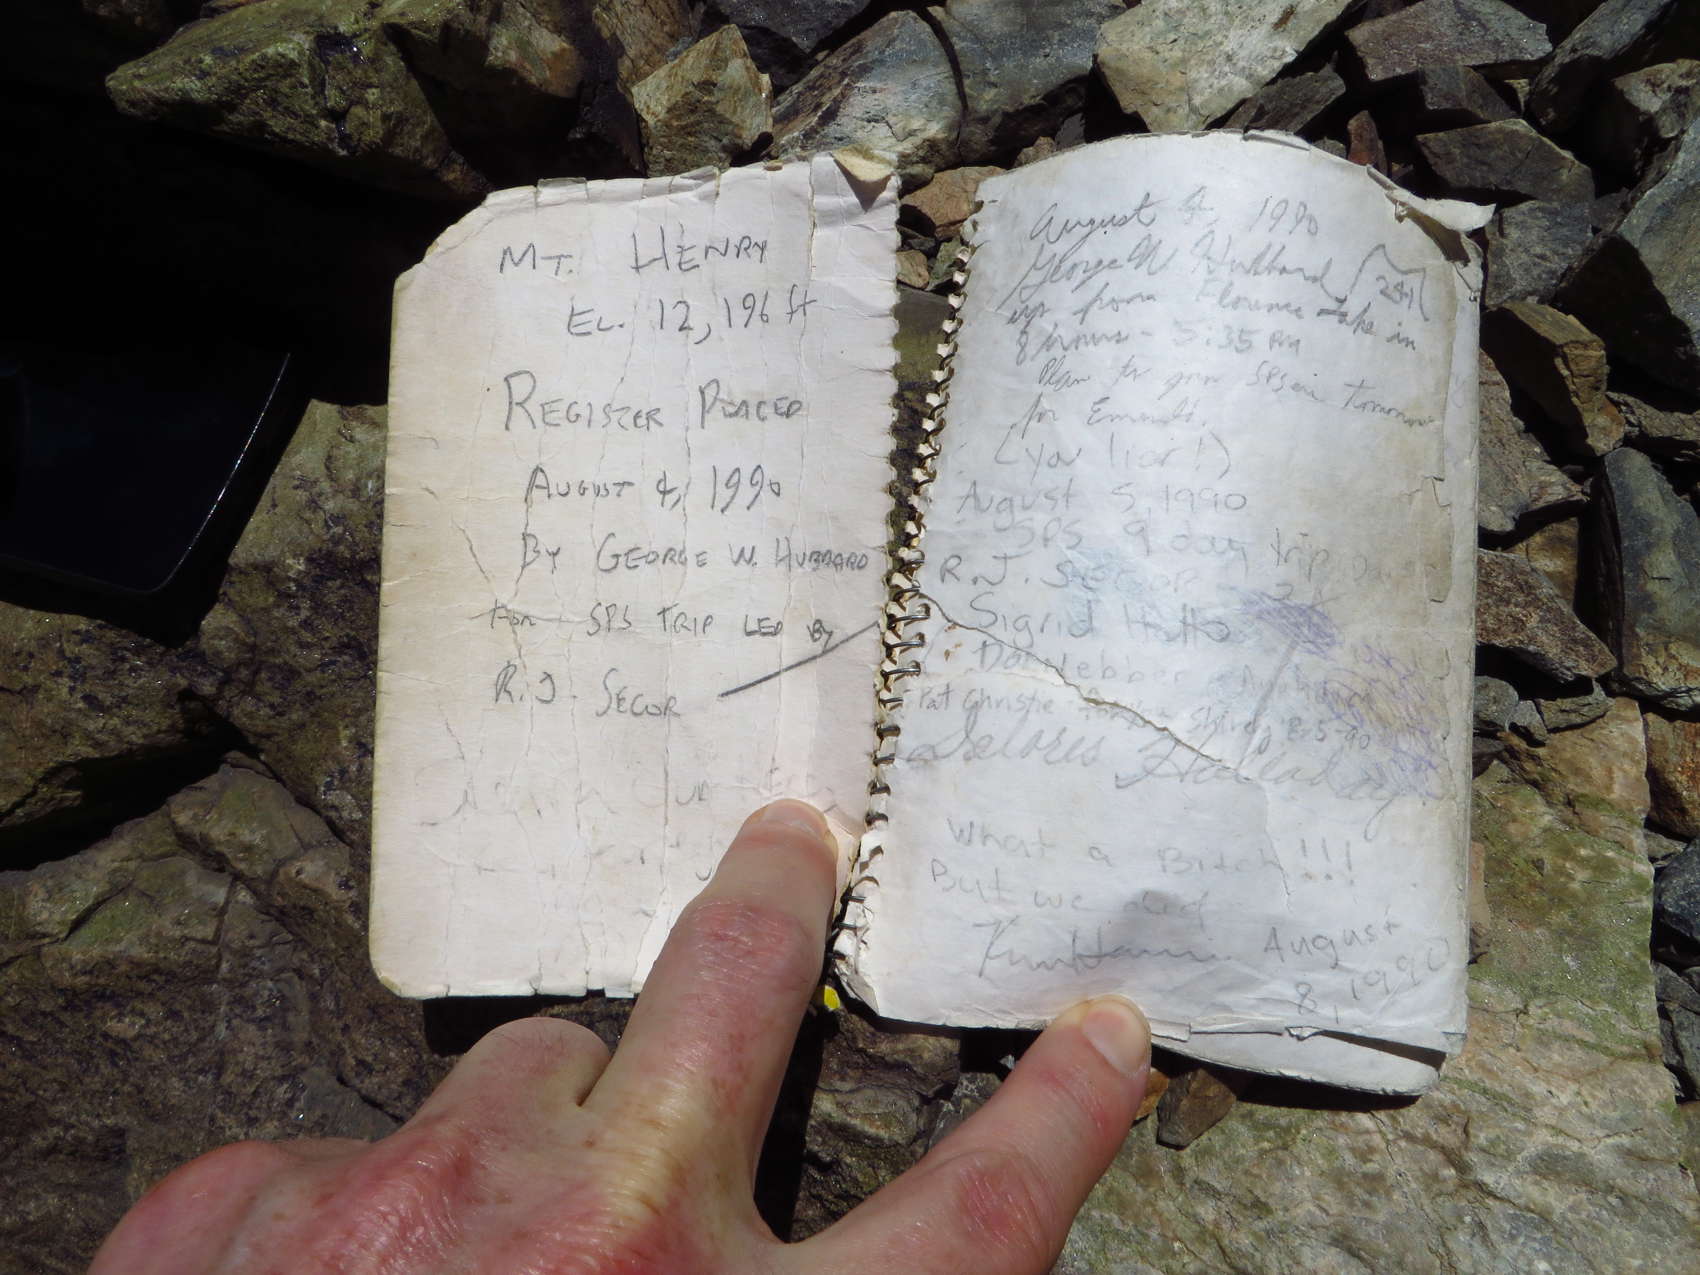 MT. HENRY
EL. 12,196 ft
REGISTER PLACED
AUGUST 4, 1990
BY GEORGE W. HUBBARD
for SPS TRIP LED BY
R.J. SECOR
August 4, 1990
George W Hubbard 241
up from Florence Lake in
8 hours - 5:35 PM
Plan to join SPSer tomorrow
for Emerald.
(you liar!)
August 5, 1990
SPS 9 day trip
R.J. SECOR - 2x
Sigrid
Pat Christie 8-5-90
Delores Holladay
What a Bitch!!!
But we did
August
8, 1990